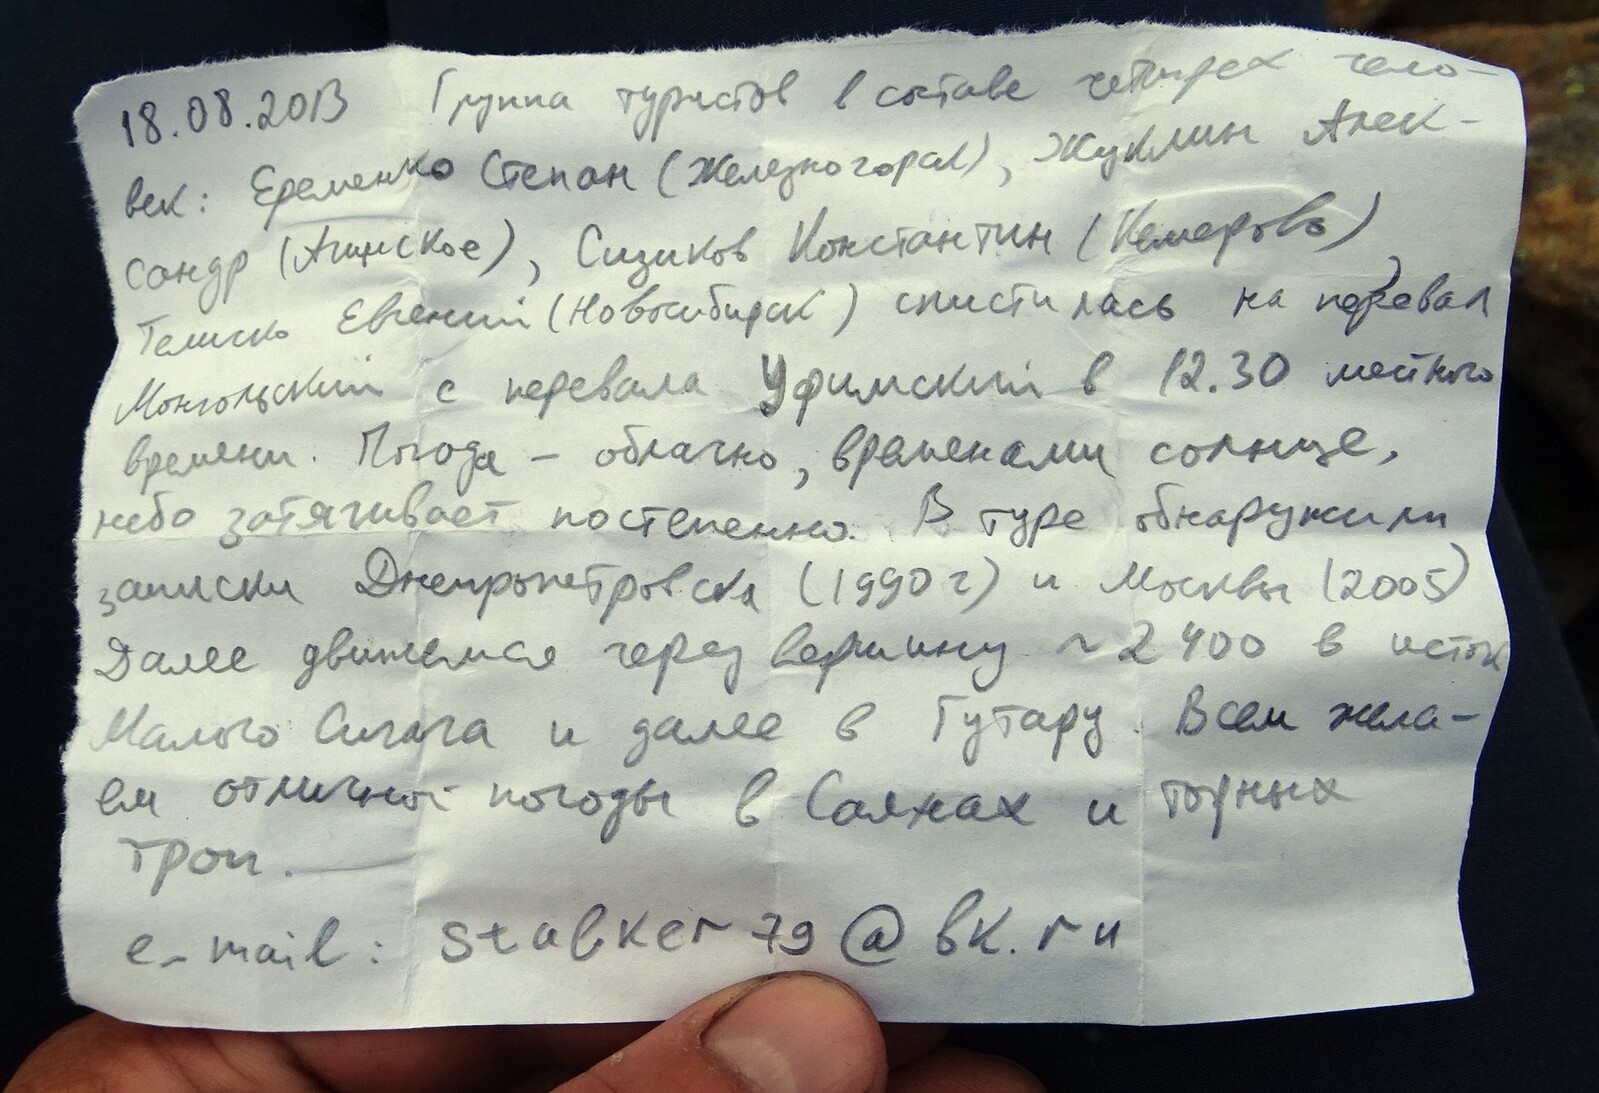 18.08.2013 Группа туристов в составе четырех чело-
век: Еременко Степан (Железногорск), Жуклин Алек-
сандр (Агинское), Сизиков Константин (Кемерово),
Евгений (Новосибирск) спустилась на перевал
Монгольский с перевала Уфимский в 12.30 местного
времени. Погода – облачно, временами солнце,
небо затягивает постепенно. В туре обнаружили
записки Днепропетровска (1990г) и Москвы (2005)
Далее движемся через вершину ~2400 в исток
Малого и далее в Гутару. Всем жела-
ем отличной погоды в Саянах и торных
троп.
e-mail: stalker79@bk.ru